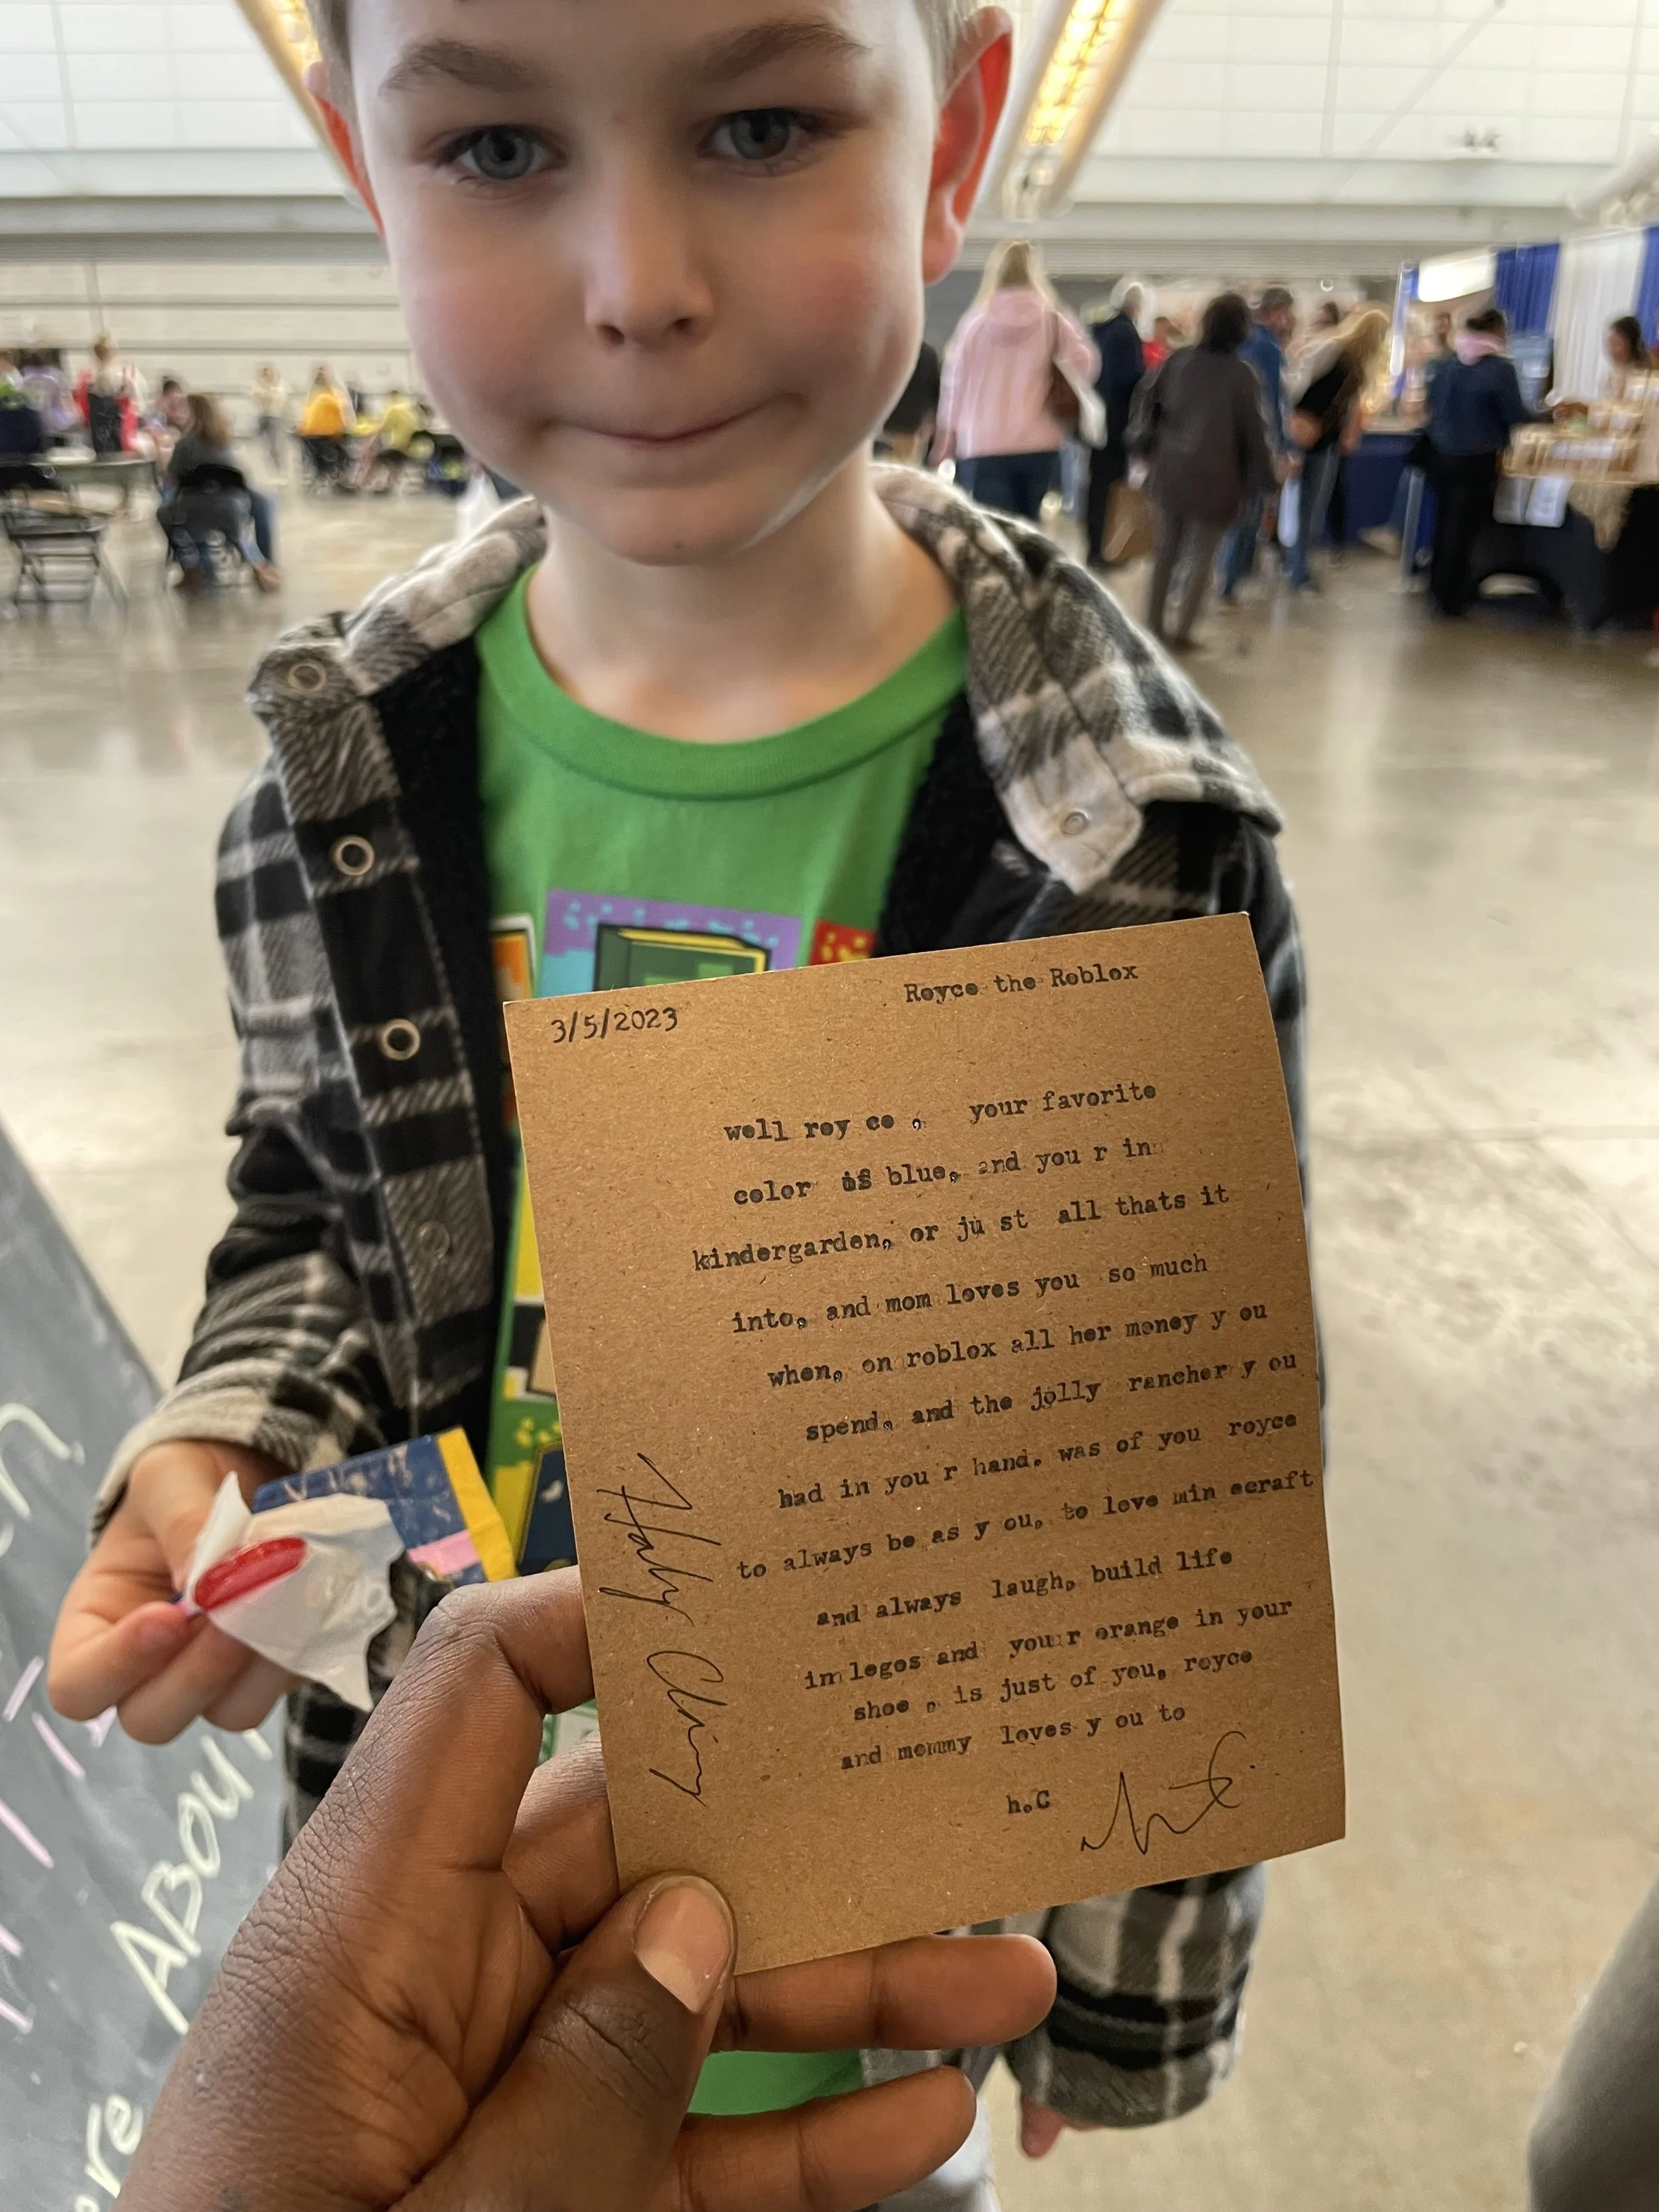 Royce the Roblox
3/5/2023
well roy ce , your favorite
color is blue, and you r in
kindergarden, or ju st all thats it
into, and mom loves you so much
when, on roblox all her money y ou
spend, and the jolly rancher y ou
had in you r hand. was of you royce
to always be as y ou, to love min ecraft
and always laugh, build life
in legos and your orange in your
shoe , is just of you, royce
and mommy loves y ou to
h.C
ABOUT